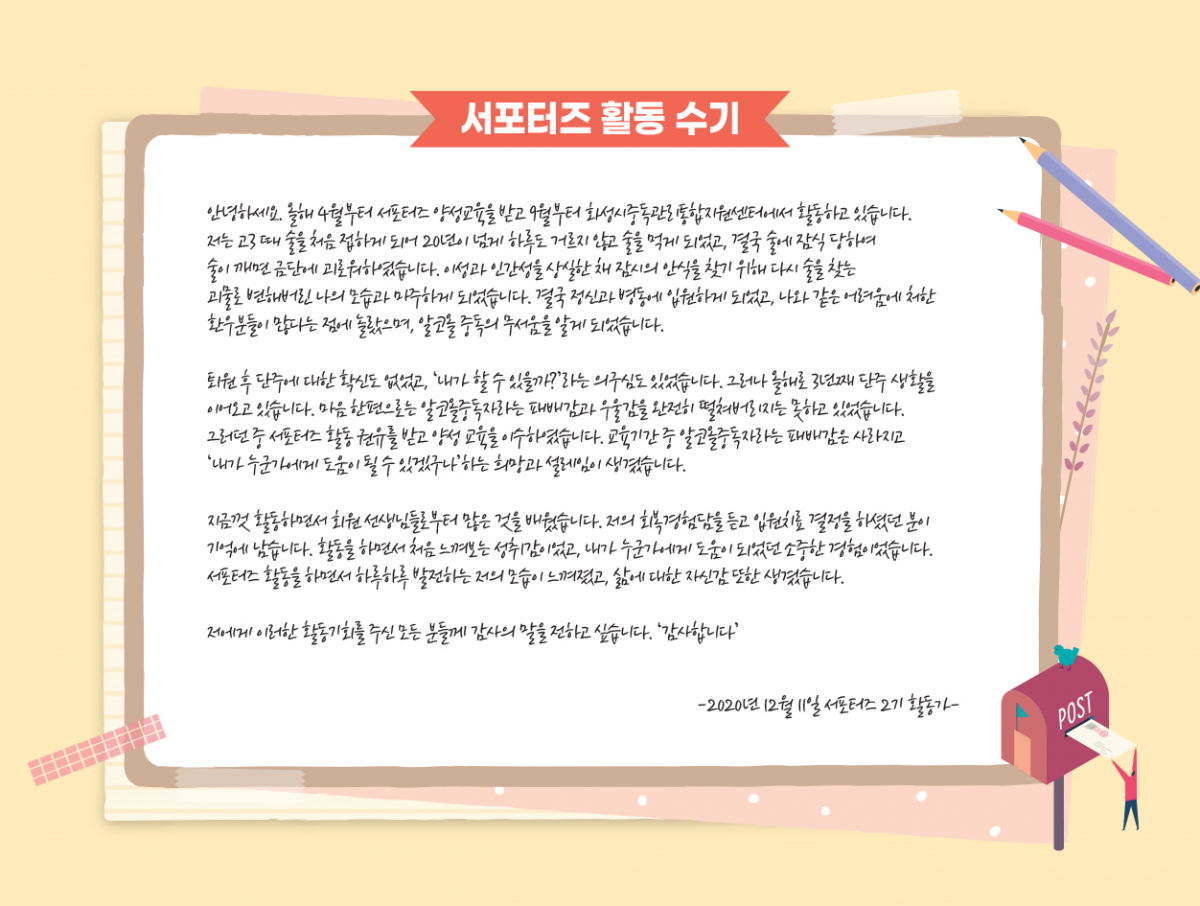 서포터즈 활동 수기
안녕하세요. 올해 4월부터 서포터즈 양성교육을 받고 9월부터 화성시중독관리통합지원센터에서 활동하고 있습니다.
저는 고3 때 술을 처음 접하게 되어 20년이 넘게 하루도 거르지 않고 술을 먹게 되었고, 결국 술에 잠식 당하여
술이 깨면 금단에 괴로워하였습니다. 이성과 인간성을 상실한 채 잠시의 안식을 찾기 위해 다시 술을 찾는
괴물로 변해버린 나의 모습과 마주하게 되었습니다. 결국 정신과 병동에 입원하게 되었고, 나와 같은 어려움에 처한
환우분들이 많다는 점에 놀랐으며, 알코올 중독의 무서움을 알게 되었습니다.
퇴원 후 단주에 대한 확신도 없었고, ‘내가 할 수 있을까?’라는 의구심도 있었습니다. 그러나 올해로 3년째 단주 생활을
이어오고 있습니다. 마음 한편으로는 알코올중독자라는 패배감과 우울감을 완전히 떨쳐버리지는 못하고 있었습니다.
그러던 중 서포터즈 활동 권유를 받고 양성 교육을 이수하였습니다. 교육기간 중 알코올중독자라는 패배감은 사라지고
‘내가 누군가에게 도움이 될 수 있겠구나’하는 희망과 설레임이 생겼습니다.
지금껏 활동하면서 회원 선생님들로부터 많은 것을 배웠습니다. 저의 회복경험담을 듣고 입원치료 결정을 하셨던 분이
기억에 남습니다. 활동을 하면서 처음 느껴보는 성취감이었고, 내가 누군가에게 도움이 되었던 소중한 경험이었습니다.
서포터즈 활동을 하면서 하루하루 발전하는 저의 모습이 느껴졌고, 삶에 대한 자신감 또한 생겼습니다.
저에게 이러한 활동기회를 주신 모든 분들께 감사의 말을 전하고 싶습니다. ‘감사합니다’
-2020년 12월 11일 서포터즈 2기 활동가-
POST